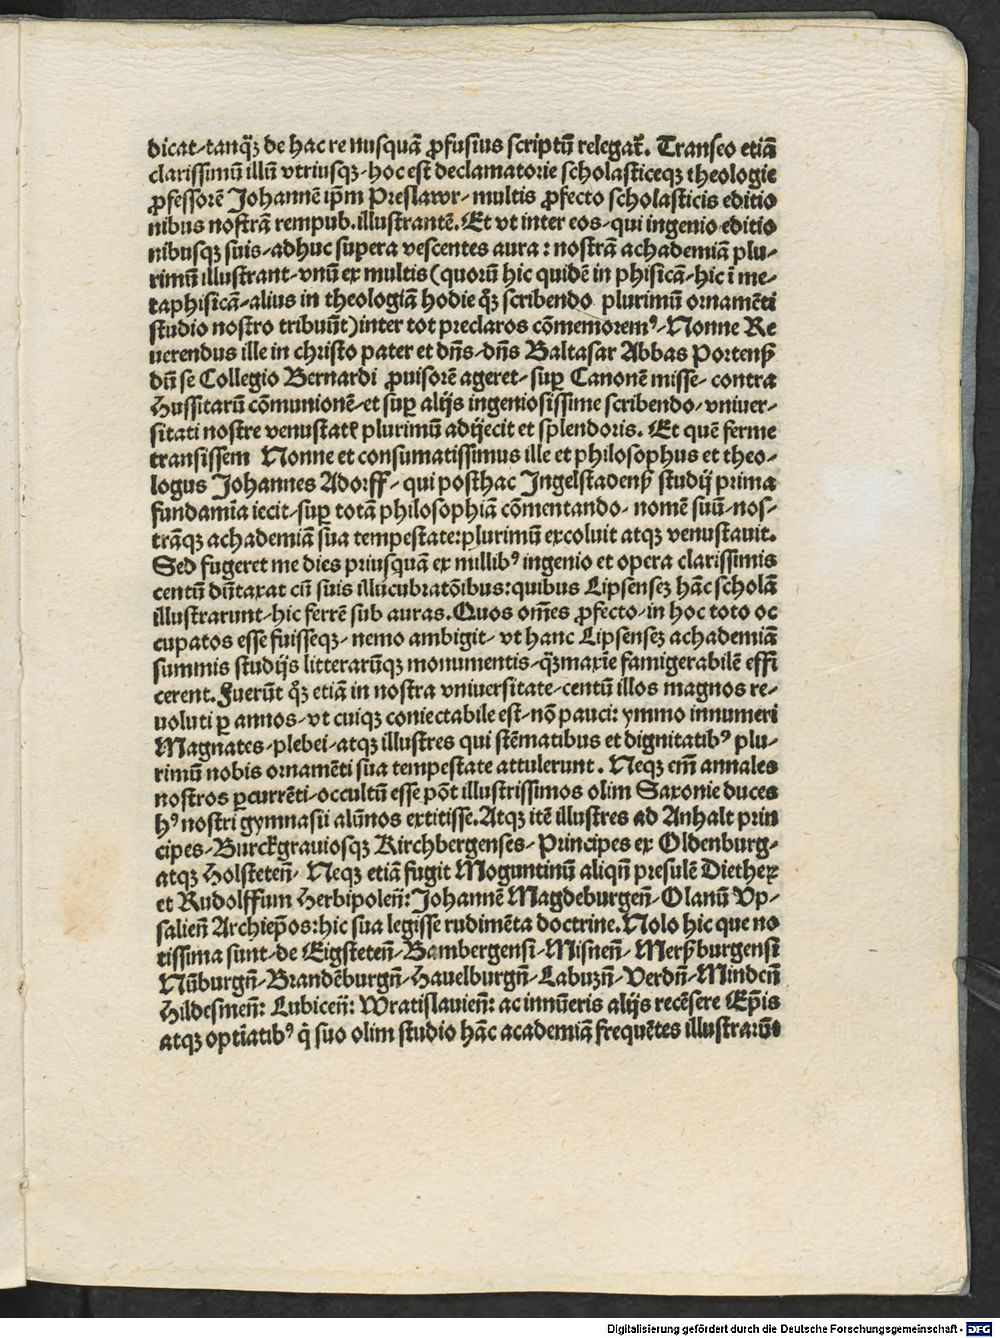 dicat-tanq̃ꝫ de hac re nusquã ꝓfusius scriptũ relegat᷒. Transeo etiã
clarissimũ illũ vtriusqꝫ-hoc est declamatorie scholasticeqꝫ theologie
ꝓfessorẽ Johannẽ ip̃m Preslawr-multis ꝓfecto scholasticis editio
nibus nostrã rempub.illustrantẽ.Et vt inter eos-qui ingenio editio
nibusqꝫ suis-adhuc supera vescentes aura:nostrã achademiã plu-
rimũ illustrant-vnũ ex multis(quorũ hic quidẽ in phisicã-hic ĩ me-
taphisicã-alius in theologiã hodie q̃ꝫ scribendo plurimũ ornamẽti
studio nostro tribuũt)inter tot preclaros cõmemoremꝰ-Nonne Re
uerendus ille in christo pater et dñs-dñs Baltasar Abbas Portenß
dũ se Collegio Bernardi ꝓuisorẽ ageret-suꝑ Canonẽ misse-contra
Hussitarũ cõmunionẽ-et suꝑ alijs ingeniosissime scribendo-vniuer-
sitati nostre venustatẽ plurimũ adijecit et splendoris. Et quẽ ferme
transissem Nonne et consumatissimus ille et philosophus et theo-
logus Johannes Adorff-qui posthac Ingelstadenß studij prima
fundamĩa iecit-suꝑ totã philosophiã cõmentando-nomẽ suũ-nos-
trãqꝫ achademiã sua tempestate:plurimũ excoluit atqꝫ venustauit.
Sed fugeret me dies priusquã ex millibꝰ ingenio et opera clarissimis
centũ dũtaxat cũ suis illucubratõibus:quibus Lipsenseꝫ hãc scholã
illustrarunt-hic ferrẽ sub auras.Quos om̃es ꝓfecto-in hoc toto oc
cupatos esse fuisseqꝫ-nemo ambigit-vt hanc Lipsenseꝫ achademiã
summis studijs litterarũqꝫ monumentis-q̃ꝫmaxĩe famigerabilẽ effi
cerent.Fuerũt q̃ꝫ etiã in nostra vniuersitate-centũ illos magnos re-
uoluti ꝑ annos-vt cuiqꝫ coniectabile est-nõ pauci: ymmo innumeri
Magnates-plebei-atqꝫ illustres qui stẽmatibus et dignitatibꝰ plu-
rimũ nobis ornamẽti sua tempestate attulerunt. Neqꝫ em̃ annales
nostros ꝑcurrẽti-occultũ esse põt illustrissimos olim Saxonie duces
hꝰ nostri gymnasii alũnos extitisse.Atqꝫ itẽ illustres ad Anhalt prin
cipes-Burckgrauiosqꝫ Kirchbergenses-Principes ex Oldenburg-
atqꝫ Holsteteñ-Neqꝫ etiã fugit Moguntinũ aliqñ presulẽ Diether
et Rudolffum Herbipoleñ:Johannẽ Magdeburgeñ-Olanũ Vp-
salieñ Archiep̃os:hic sua legisse rudimẽta doctrine.Nolo hic que no
tissima sunt-de Eigsteteñ-Bambergensi-Misneñ-Merßburgensi
Nũburgñ-Brandẽburgñ-Hauelburgñ-Labuzñ-Verdñ-Mindeñ
Hildesmeñ: Lubiceñ: Wratislauieñ: ac innũeris alijs recẽsere Ep̃is
atqꝫ optĩatibꝰ q̃ suo olim studio hãc academiã frequẽtes illustrarũt
Digitalisierung gefördert durch die Deutsche Forschungsgemeinschaft - DFG